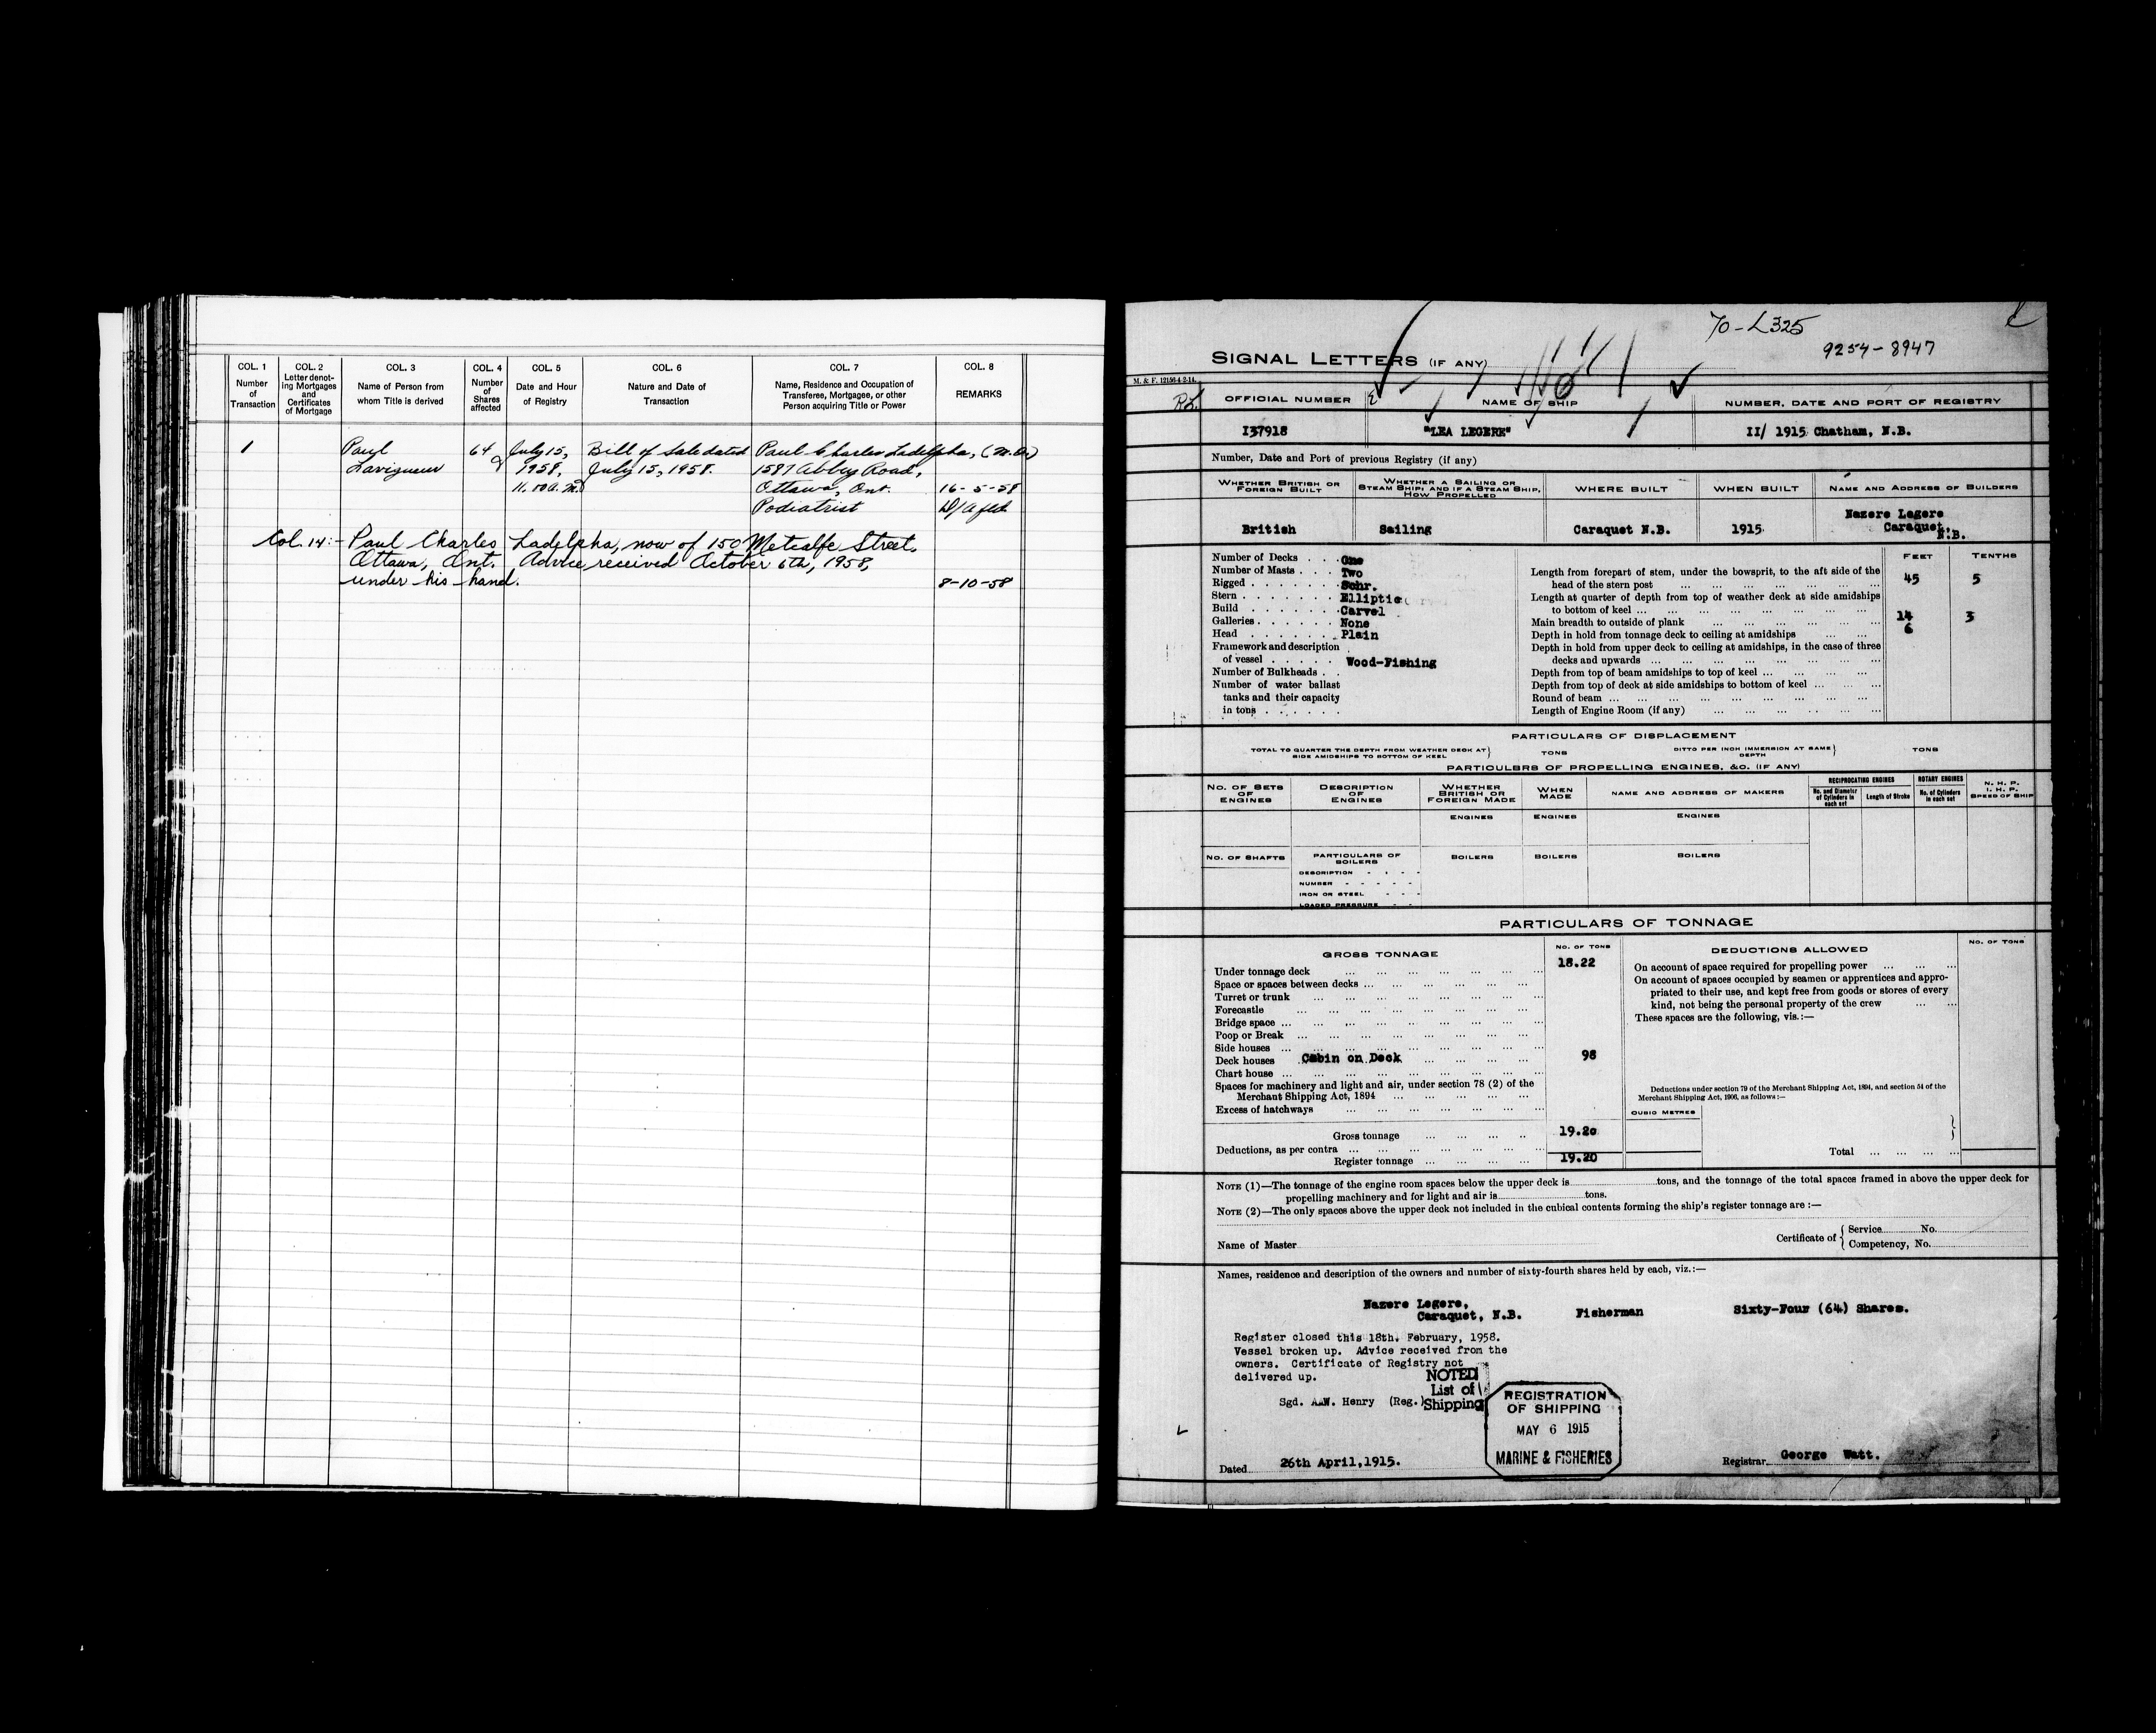 COL. 1 COL. 2 COL. 3 COL. 4 COL. 5 COL. 6 COL. 7 COL. 8
Number of Transaction
Letter denoting Mortgages and Certificates of Mortgage
Name of Person from whom Title is derived
Number of Shares affected
Date and Hour of Registry
Nature and Date of Transaction
Name, Residence and Occupation of Transferee, Mortgagee, or other Person acquiring Title or Power
REMARKS
1 Paul 64 July 15, Bill of Sale dated Paul Charles Ladelpha, (M.O.)
Lavigueur 1958, July 15, 1958. 1587 Abbey Road,
11.50 a.m. Ottawa, Ont. 16-5-58
Podiatrist
Col. 14:- Paul Charles Ladelpha, now of 150 Metcalfe Street,
Ottawa, Ont. Advice received October 6th, 1958,
under his hand. 8-10-58
70-L325
9254-8947
SIGNAL LETTERS (IF ANY)
M. & F. 12156-4-2-14.
OFFICIAL NUMBER NAME OF SHIP NUMBER, DATE AND PORT OF REGISTRY
I37918 "LEA LEGERE" II/ 1915 Chatham, N.B.
Number, Date and Port of previous Registry (if any)
WHETHER BRITISH OR FOREIGN BUILT
WHETHER A SAILING OR STEAM SHIP; AND IF A STEAM SHIP, HOW PROPELLED
WHERE BUILT WHEN BUILT NAME AND ADDRESS OF BUILDERS
British Sailing Caraquet N.B. 1915 Nazere Legere
Caraquet,
N.B.
Number of Decks . . . One
Number of Masts . . . Two
Rigged . . . . . . . Schr.
Stern . . . . . . . . Elliptic
Build . . . . . . . Carvel
Galleries . . . . . . None
Head . . . . . . . Plain
Framework and description
of vessel . . . . . Wood-Fishing
Number of Bulkheads . .
Number of water ballast
tanks and their capacity
in tons . . . . . .
FEET TENTHS
Length from forepart of stem, under the bowsprit, to the aft side of the
head of the stern post 45 5
Length at quarter of depth from top of weather deck at side amidships
to bottom of keel
Main breadth to outside of plank 14 3
Depth in hold from tonnage deck to ceiling at amidships 6
Depth in hold from upper deck to ceiling at amidships, in the case of three
decks and upwards
Depth from top of beam amidships to top of keel
Depth from top of deck at side amidships to bottom of keel
Round of beam
Length of Engine Room (if any)
PARTICULARS OF DISPLACEMENT
TOTAL TO QUARTER THE DEPTH FROM WEATHER DECK AT SIDE AMIDSHIPS TO BOTTOM OF KEEL } TONS DITTO PER INCH IMMERSION AT SAME DEPTH } TONS
PARTICULBRS OF PROPELLING ENGINES, &C. (IF ANY)
NO. OF SETS OF ENGINES
DESCRIPTION OF ENGINES
WHETHER BRITISH OR FOREIGN MADE
WHEN MADE
NAME AND ADDRESS OF MAKERS
RECIPROCATING ENGINES
No. and Diameter of Cylinders in each set
Length of Stroke
ROTARY ENGINES
No. of Cylinders in each set
N. H. P.
I. H. P.
SPEED OF SHIP
ENGINES ENGINES ENGINES
NO. OF SHAFTS PARTICULARS OF BOILERS BOILERS BOILERS BOILERS
DESCRIPTION
NUMBER
IRON OR STEEL
LOADED PRESSURE
PARTICULARS OF TONNAGE
GROSS TONNAGE NO. OF TONS
Under tonnage deck 18.22
Space or spaces between decks
Turret or trunk
Forecastle
Bridge space
Poop or Break
Side houses
Deck houses Cabin on Deck 98
Chart house
Spaces for machinery and light and air, under section 78 (2) of the
Merchant Shipping Act, 1894
Excess of hatchways
Gross tonnage 19.20
Deductions, as per contra
Register tonnage 19.20
DEDUCTIONS ALLOWED NO. OF TONS
On account of space required for propelling power
On account of spaces occupied by seamen or apprentices and appro-
priated to their use, and kept free from goods or stores of every
kind, not being the personal property of the crew
These spaces are the following, vis.:—
Deductions under section 79 of the Merchant Shipping Act, 1894, and section 54 of the
Merchant Shipping Act, 1906, as follows:—
CUBIC METRES
Total
NOTE (1)—The tonnage of the engine room spaces below the upper deck is tons, and the tonnage of the total spaces framed in above the upper deck for
propelling machinery and for light and air is tons.
NOTE (2)—The only spaces above the upper deck not included in the cubical contents forming the ship's register tonnage are :—
Name of Master Certificate of { Service No.
Competency, No.
Names, residence and description of the owners and number of sixty-fourth shares held by each, viz.:—
Nazere Legere,
Caraquet, N.B. Fisherman Sixty-Four (64) Shares.
Register closed this 18th. February, 1958.
Vessel broken up. Advice received from the
owners. Certificate of Registry not
delivered up.
Sgd. A.W. Henry (Reg.)
NOTED
List of
Shipping
REGISTRATION
OF SHIPPING
MAY 6 1915
MARINE & FISHERIES
Dated 26th April, 1915. Registrar George Watt.